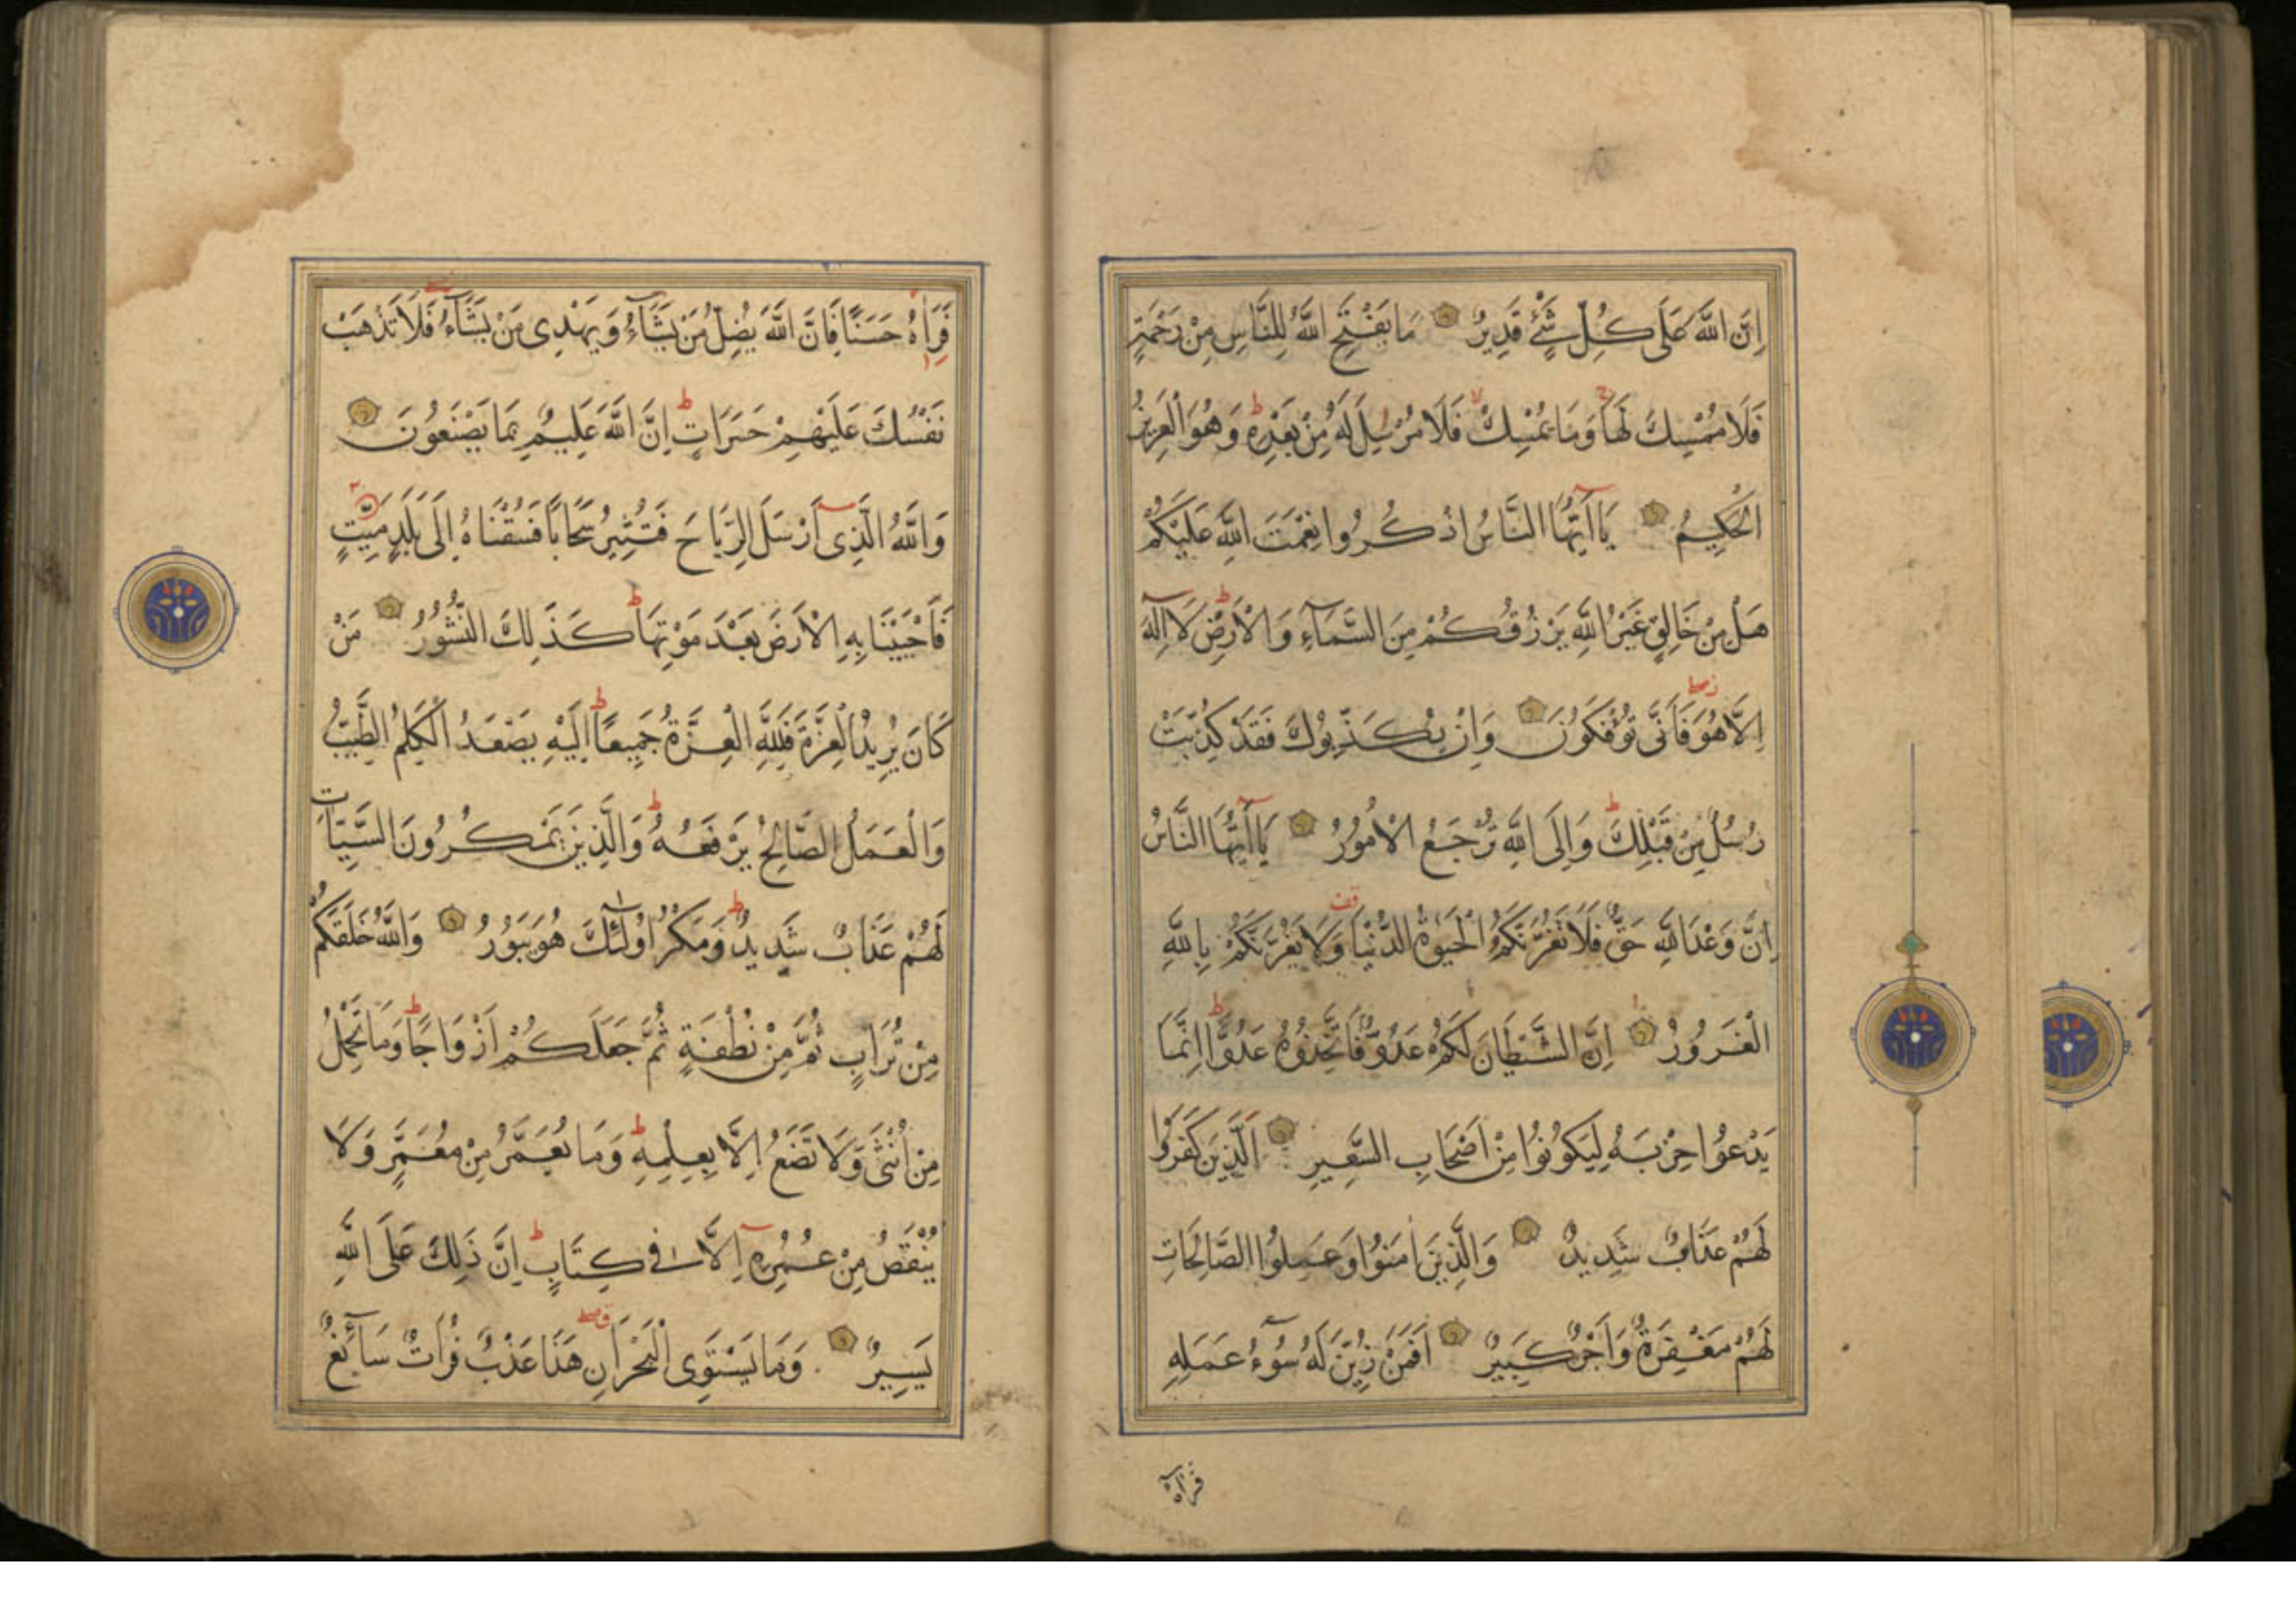 اِنَّ اللّٰهَ عَلَى كُلِّ شَيْءٍ قَدِيرٌ مَا يَفْتَحِ اللّٰهُ لِلنَّاسِ مِنْ رَحْمَةٍ
فَلَا مُمْسِكَ لَهَا وَمَا يُمْسِكْ فَلَا مُرْسِلَ لَهُ مِنْ بَعْدِهِ وَهُوَ الْعَزِيزُ
الْحَكِيمُ يَا اَيُّهَا النَّاسُ اذْكُرُوا نِعْمَتَ اللّٰهِ عَلَيْكُمْ
هَلْ مِنْ خَالِقٍ غَيْرُ اللّٰهِ يَرْزُقُكُمْ مِنَ السَّمَاءِ وَالْاَرْضِ لَا اِلٰهَ
اِلَّا هُوَ فَاَنّٰى تُؤْفَكُونَ وَاِنْ يُكَذِّبُوكَ فَقَدْ كُذِّبَتْ
رُسُلٌ مِنْ قَبْلِكَ وَاِلَى اللّٰهِ تُرْجَعُ الْاُمُورُ يَا اَيُّهَا النَّاسُ
اِنَّ وَعْدَ اللّٰهِ حَقٌّ فَلَا تَغُرَّنَّكُمُ الْحَيٰوةُ الدُّنْيَا وَلَا يَغُرَّنَّكُمْ بِاللّٰهِ
الْغَرُورُ اِنَّ الشَّيْطَانَ لَكُمْ عَدُوٌّ فَاتَّخِذُوهُ عَدُوًّا اِنَّمَا
يَدْعُوا حِزْبَهُ لِيَكُونُوا مِنْ اَصْحَابِ السَّعِيرِ اَلَّذِينَ كَفَرُوا
لَهُمْ عَذَابٌ شَدِيدٌ وَالَّذِينَ اٰمَنُوا وَعَمِلُوا الصَّالِحَاتِ
لَهُمْ مَغْفِرَةٌ وَاَجْرٌ كَبِيرٌ اَفَمَنْ زُيِّنَ لَهُ سُوءُ عَمَلِهِ
فرآه
فَرَاٰهُ حَسَنًا فَاِنَّ اللّٰهَ يُضِلُّ مَنْ يَشَاءُ وَيَهْدِى مَنْ يَشَاءُ فَلَا تَذْهَبْ
نَفْسُكَ عَلَيْهِمْ حَسَرَاتٍ اِنَّ اللّٰهَ عَلِيمٌ بِمَا يَصْنَعُونَ
وَاللّٰهُ الَّذِى اَرْسَلَ الرِّيَاحَ فَتُثِيرُ سَحَابًا فَسُقْنَاهُ اِلَى بَلَدٍ مَيِّتٍ
فَاَحْيَيْنَا بِهِ الْاَرْضَ بَعْدَ مَوْتِهَا كَذٰلِكَ النُّشُورُ مَنْ
كَانَ يُرِيدُ الْعِزَّةَ فَلِلّٰهِ الْعِزَّةُ جَمِيعًا اِلَيْهِ يَصْعَدُ الْكَلِمُ الطَّيِّبُ
وَالْعَمَلُ الصَّالِحُ يَرْفَعُهُ وَالَّذِينَ يَمْكُرُونَ السَّيِّئَاتِ
لَهُمْ عَذَابٌ شَدِيدٌ وَمَكْرُ اُولٰئِكَ هُوَ يَبُورُ وَاللّٰهُ خَلَقَكُمْ
مِنْ تُرَابٍ ثُمَّ مِنْ نُطْفَةٍ ثُمَّ جَعَلَكُمْ اَزْوَاجًا وَمَا تَحْمِلُ
مِنْ اُنْثٰى وَلَا تَضَعُ اِلَّا بِعِلْمِهِ وَمَا يُعَمَّرُ مِنْ مُعَمَّرٍ وَلَا
يُنْقَصُ مِنْ عُمُرِهِ اِلَّا فِى كِتَابٍ اِنَّ ذٰلِكَ عَلَى اللّٰهِ
يَسِيرٌ وَمَا يَسْتَوِى الْبَحْرَانِ هٰذَا عَذْبٌ فُرَاتٌ سَائِغٌ